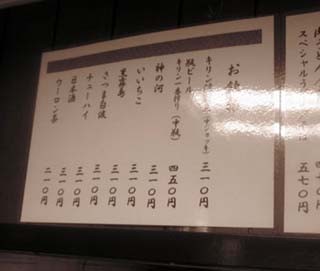 お飲
キリン
(中ジョッキ) 三一〇円
瓶ビール
キリン一番搾り (中瓶) 四五〇円
神の河 三一〇円
いいちこ 三一〇円
黒霧島 三一〇円
さつま白波 三一〇円
チューハイ 三一〇円
日本酒 三一〇円
ウーロン茶 二一〇円
スペシャルう
五七〇円